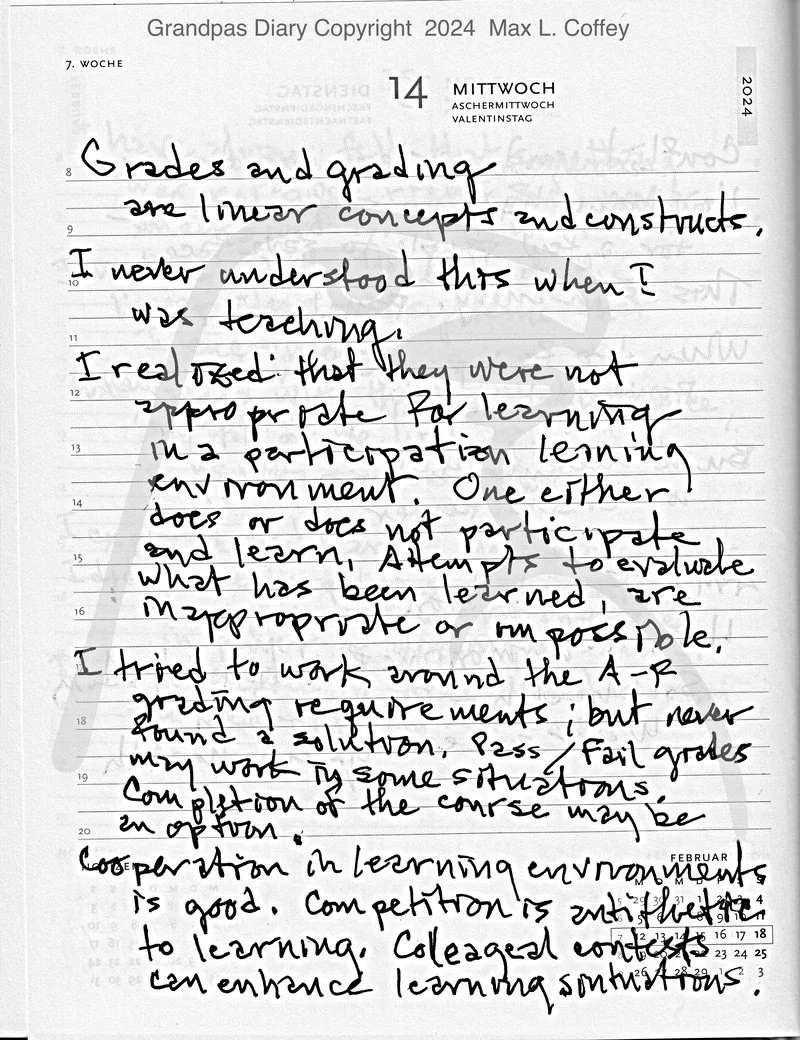 Grandpas Diary Copyright 2024 Max L. Coffey
7. WOCHE
14 MITTWOCH
ASCHERMITTWOCH
VALENTINSTAG
2024
8 Grades and grading
are linear concepts and constructs.
9
10 I never understood this when I
was teaching.
11
I realized that they were not
12 appropriate for learning
13 in a participation lerning
environment. One either
14 does or does not participate
15 and learn. Attempts to evaluate
what has been learned, are
16 inappropriate or impossible.
17 I tried to work around the A-F
grading requirements; but never
18 found a solution. Pass/Fail grades
may work in some situations.
19 Completion of the course may be
20 an option.
Cooperation in learning environments
FEBRUAR
is good. Competition is antithetic
to learning. Coleageal contests
can enhance learning sintuations.
15 16 17 18
22 23 24 25
26 27 28 29 1 2 3